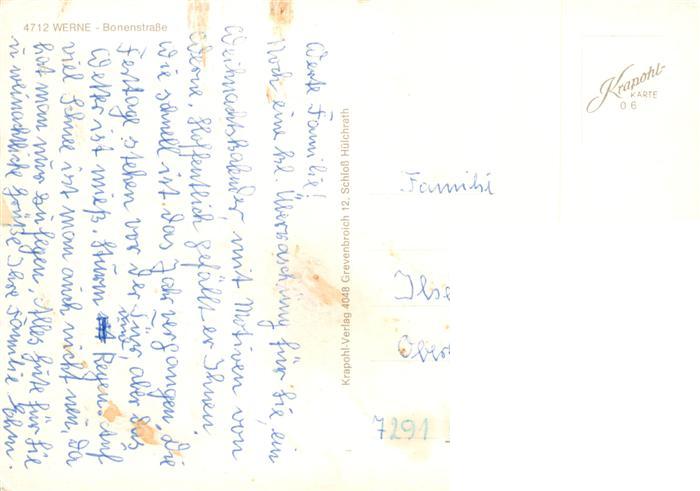 4712 WERNE - Bonenstraße
Werte Familie!
Noch eine kl. Überraschung für Sie, ein
Weihnachtskalender, mit Motiven von
Werne. Hoffentlich gefällt er Ihnen.
Wie schnell ist das Jahr vergangen, die
Festage stehen vor der Tür, aber das
Wetter ist mieß. Sturm und Regen. Auf
viel Schnee ist man auch nicht neu, da
hat man nur zu fegen. Alles Gute für Sie
u. weinachtliche Grüße Ihre Familie Ehm.
Krapohl-Verlag 4048 Grevenbroich 12, Schloß Hülchrath
Krapohl-
KARTE
06
Familie
Ilse
Ober
7291